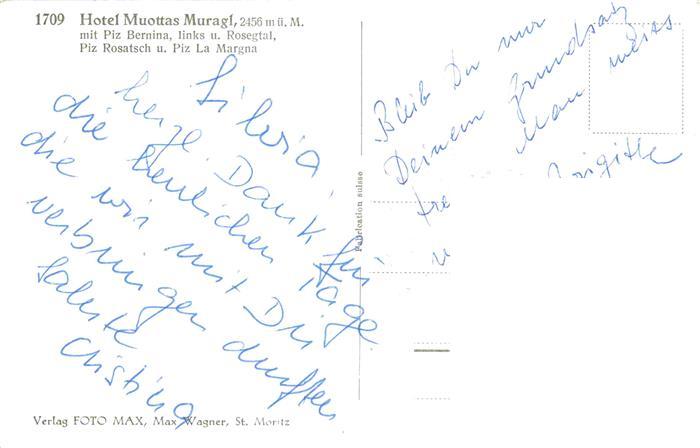 1709 Hotel Muottas Muragl, 2456 m ü. M.
mit Piz Bernina, links u. Rosegtal,
Piz Rosatsch u. Piz La Margna
Silvia,
herzl. Dank für
die herrlichen Tage
die wir mit Dir
verbringen durften
Salute
Christina
Bleib Du nur
Deinem Grundsatz
tre
Man weiss
Brigitte
Fabrication suisse
Verlag FOTO MAX, Max Wagner, St. Moritz